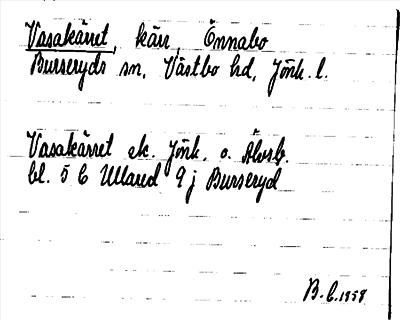 Vasakärret, kärr, Önnabo
Burseryds sn, Västbo hd, Jönk. l.
Vasakärret ek. Jönk. o. Älvsb.
bl. 5 C Ullared 9 j Burseryd
B. C. 1958